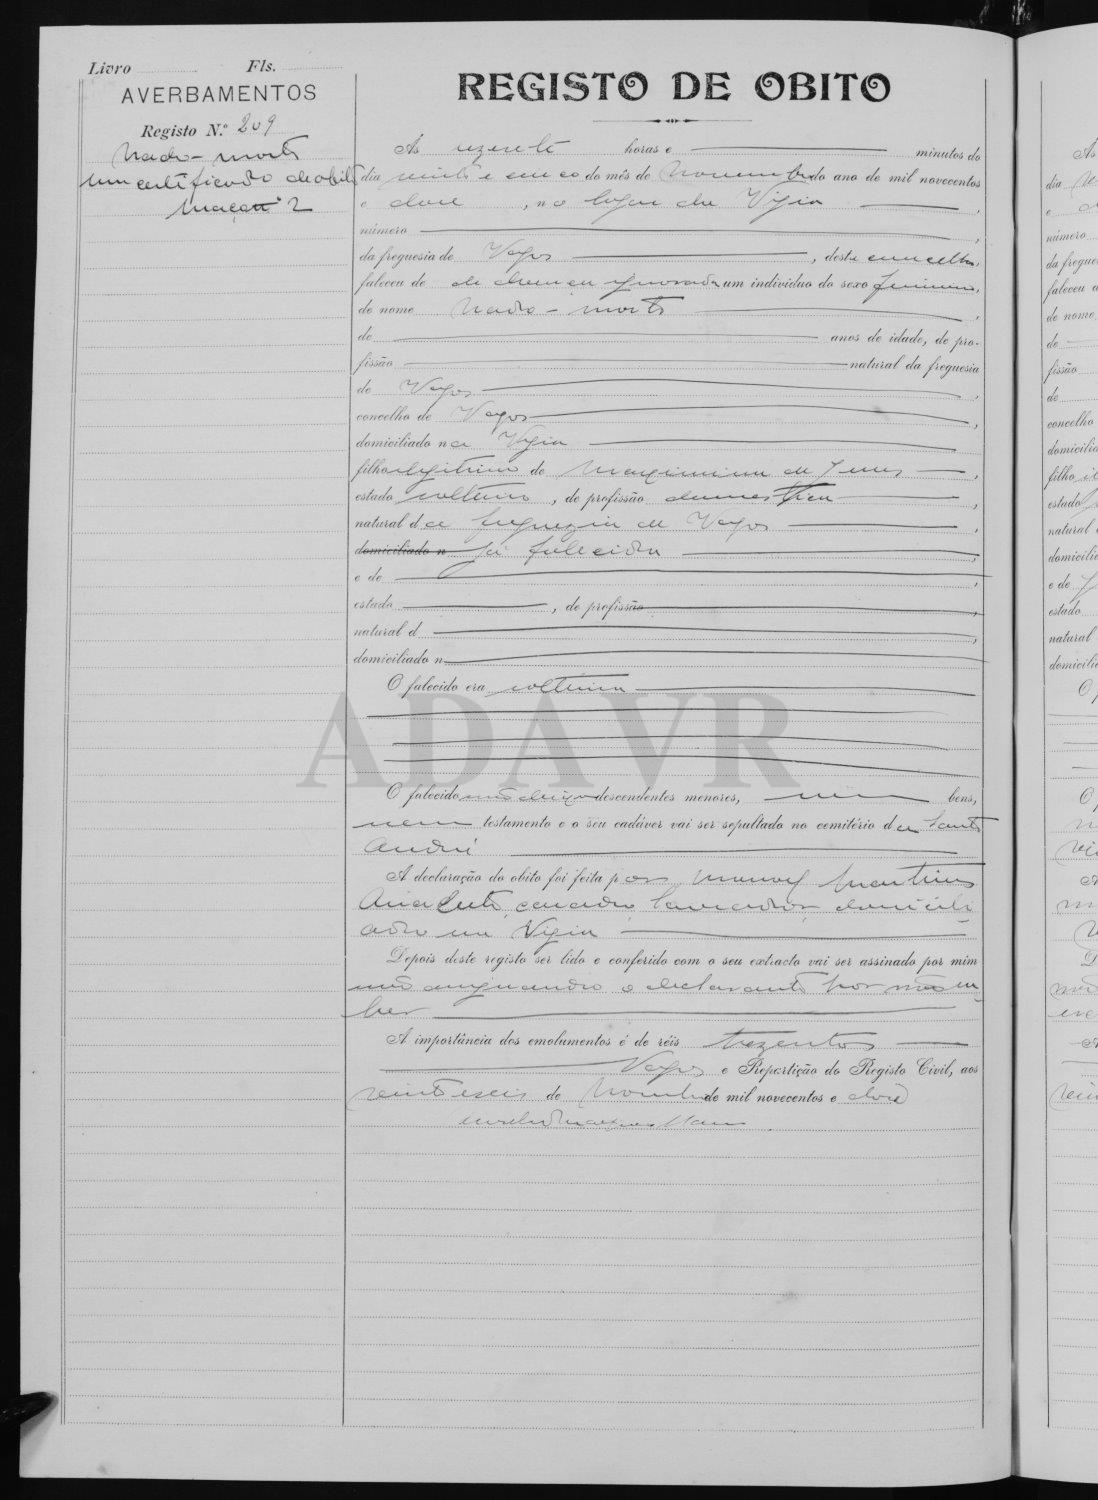 Livro Fls.
AVERBAMENTOS
Registo N.º 209
Nado-morto
um certificado de obito
maço nº 2
REGISTO DE OBITO
As horas e minutos do
dia vinte e cinco do mês de Novembro do ano de mil novecentos
e doze, no logar da Vigia
número
da freguesia de Vagos, deste concelho,
faleceu de doença ignorada um individuo do sexo feminino,
de nome Nado-morto
de anos de idade, de pro-
fissão natural da freguesia
de Vagos
concelho de Vagos
domiciliado na Vigia
filho ilegitimo de Maximina de Jesus
estado solteiro, de profissão domestica
natural da freguezia de Vagos
domiciliado n já falecida
e de
estado, de profissão
natural d
domiciliado n
O falecido era solteira
ADAVR
O falecido não deixou descendentes menores, nem bens,
nem testamento e o seu cadáver vai ser sepultado no cemitério de Santo
André
A declaração do obito foi feita por Manuel Martins
casado, lavrador, domicili
ado na Vigia
Depois deste registo ser lido e conferido com o seu extracto vai ser assinado por mim
não assignando o declarante por não sa-
ber
A importância dos emolumentos é de réis trezentos
Vagos e Repartição do Registo Civil, aos
vinte e seis de Novembro de mil novecentos e doze